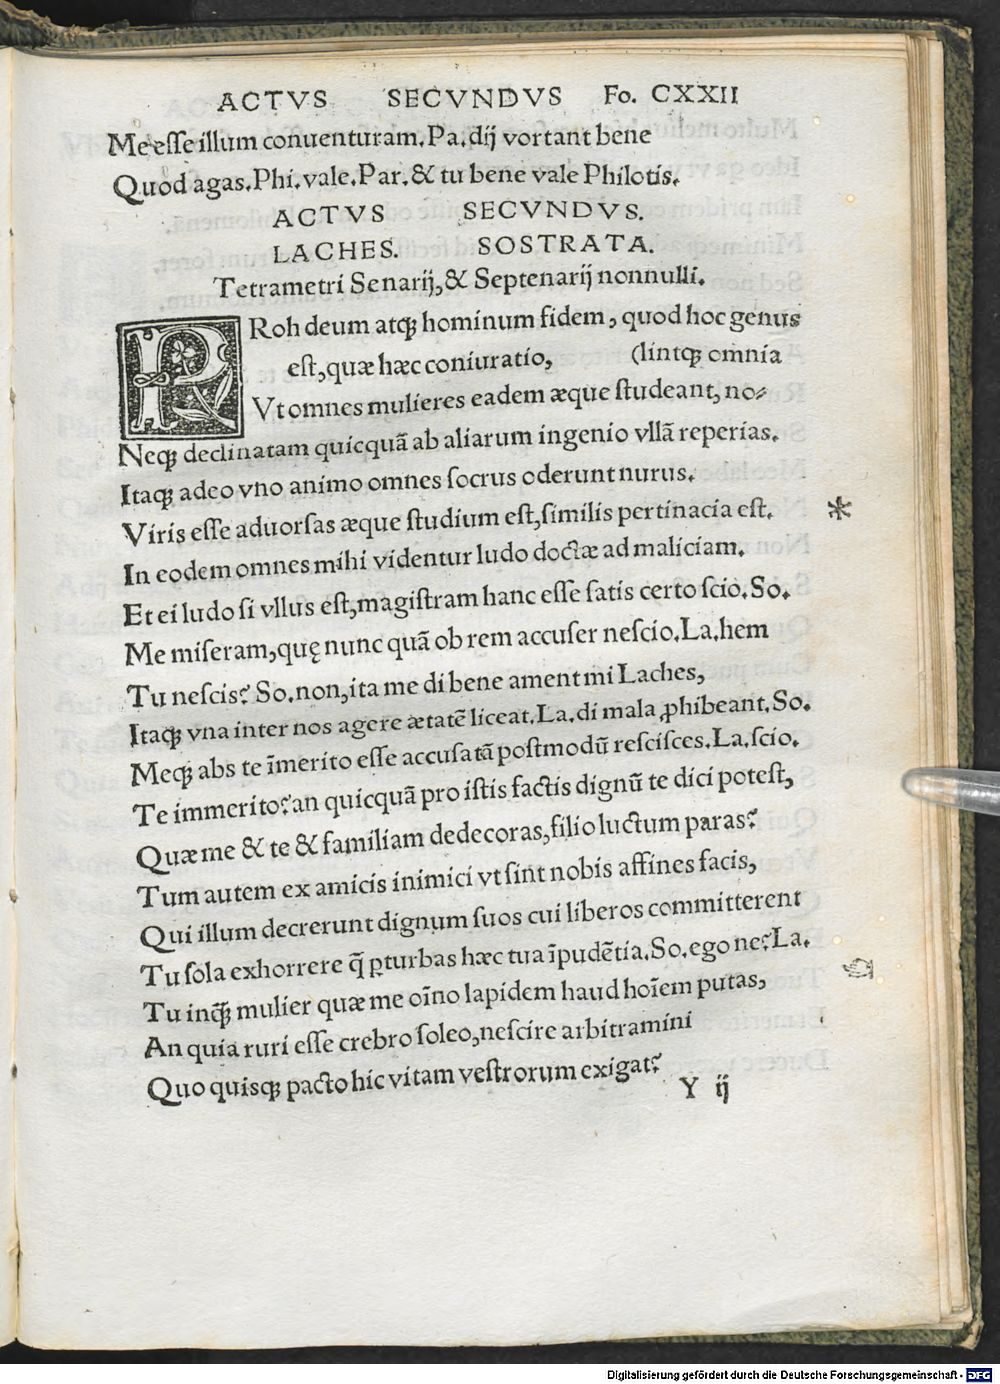 ACTVS SECVNDVS Fo. CXXII
Me esse illum conuenturam. Pa. dij vortant bene
Quod agas. Phi. vale. Par. & tu bene vale Philotis.
ACTVS SECVNDVS.
LACHES. SOSTRATA.
Tetrametri Senarij, & Septenarij nonnulli.
PRoh deum atqꝫ hominum fidem, quod hoc genus
est, quæ hæc coniuratio, (lintqꝫ omnia
Vt omnes mulieres eadem æque studeant, no⸗
Neqꝫ declinatam quicquã ab aliarum ingenio vllã reperias.
Itaqꝫ adeo vno animo omnes socrus oderunt nurus.
Viris esse aduorsas æque studium est, similis pertinacia est. *
In eodem omnes mihi videntur ludo doctæ ad maliciam.
Et ei ludo si vllus est, magistram hanc esse satis certo scio. So.
Me miseram, quę nunc quã ob rem accuser nescio. La. hem
Tu nescis? So. non, ita me di bene ament mi Laches,
Itaqꝫ vna inter nos agere ætatẽ liceat. La. di mala ꝓhibeant. So.
Meqꝫ abs te ĩmerito esse accusatã postmodũ rescisces. La. scio.
Te immerito? an quicquã pro istis factis dignũ te dici potest,
Quæ me & te & familiam dedecoras, filio luctum paras?
Tum autem ex amicis inimici vt sint nobis affines facis,
Qui illum decrerunt dignum suos cui liberos committerent
Tu sola exhorrere q̃ ꝑturbas hæc tua ĩpudẽtia. So. ego ne? La.
Tu inqꝫ mulier quæ me oĩno lapidem haud hoĩem putas,
An quia ruri esse crebro soleo, nescire arbitramini
Quo quisqꝫ pacto hic vitam vestrorum exigat?
Y ij
Digitalisierung gefördert durch die Deutsche Forschungsgemeinschaft - DFG